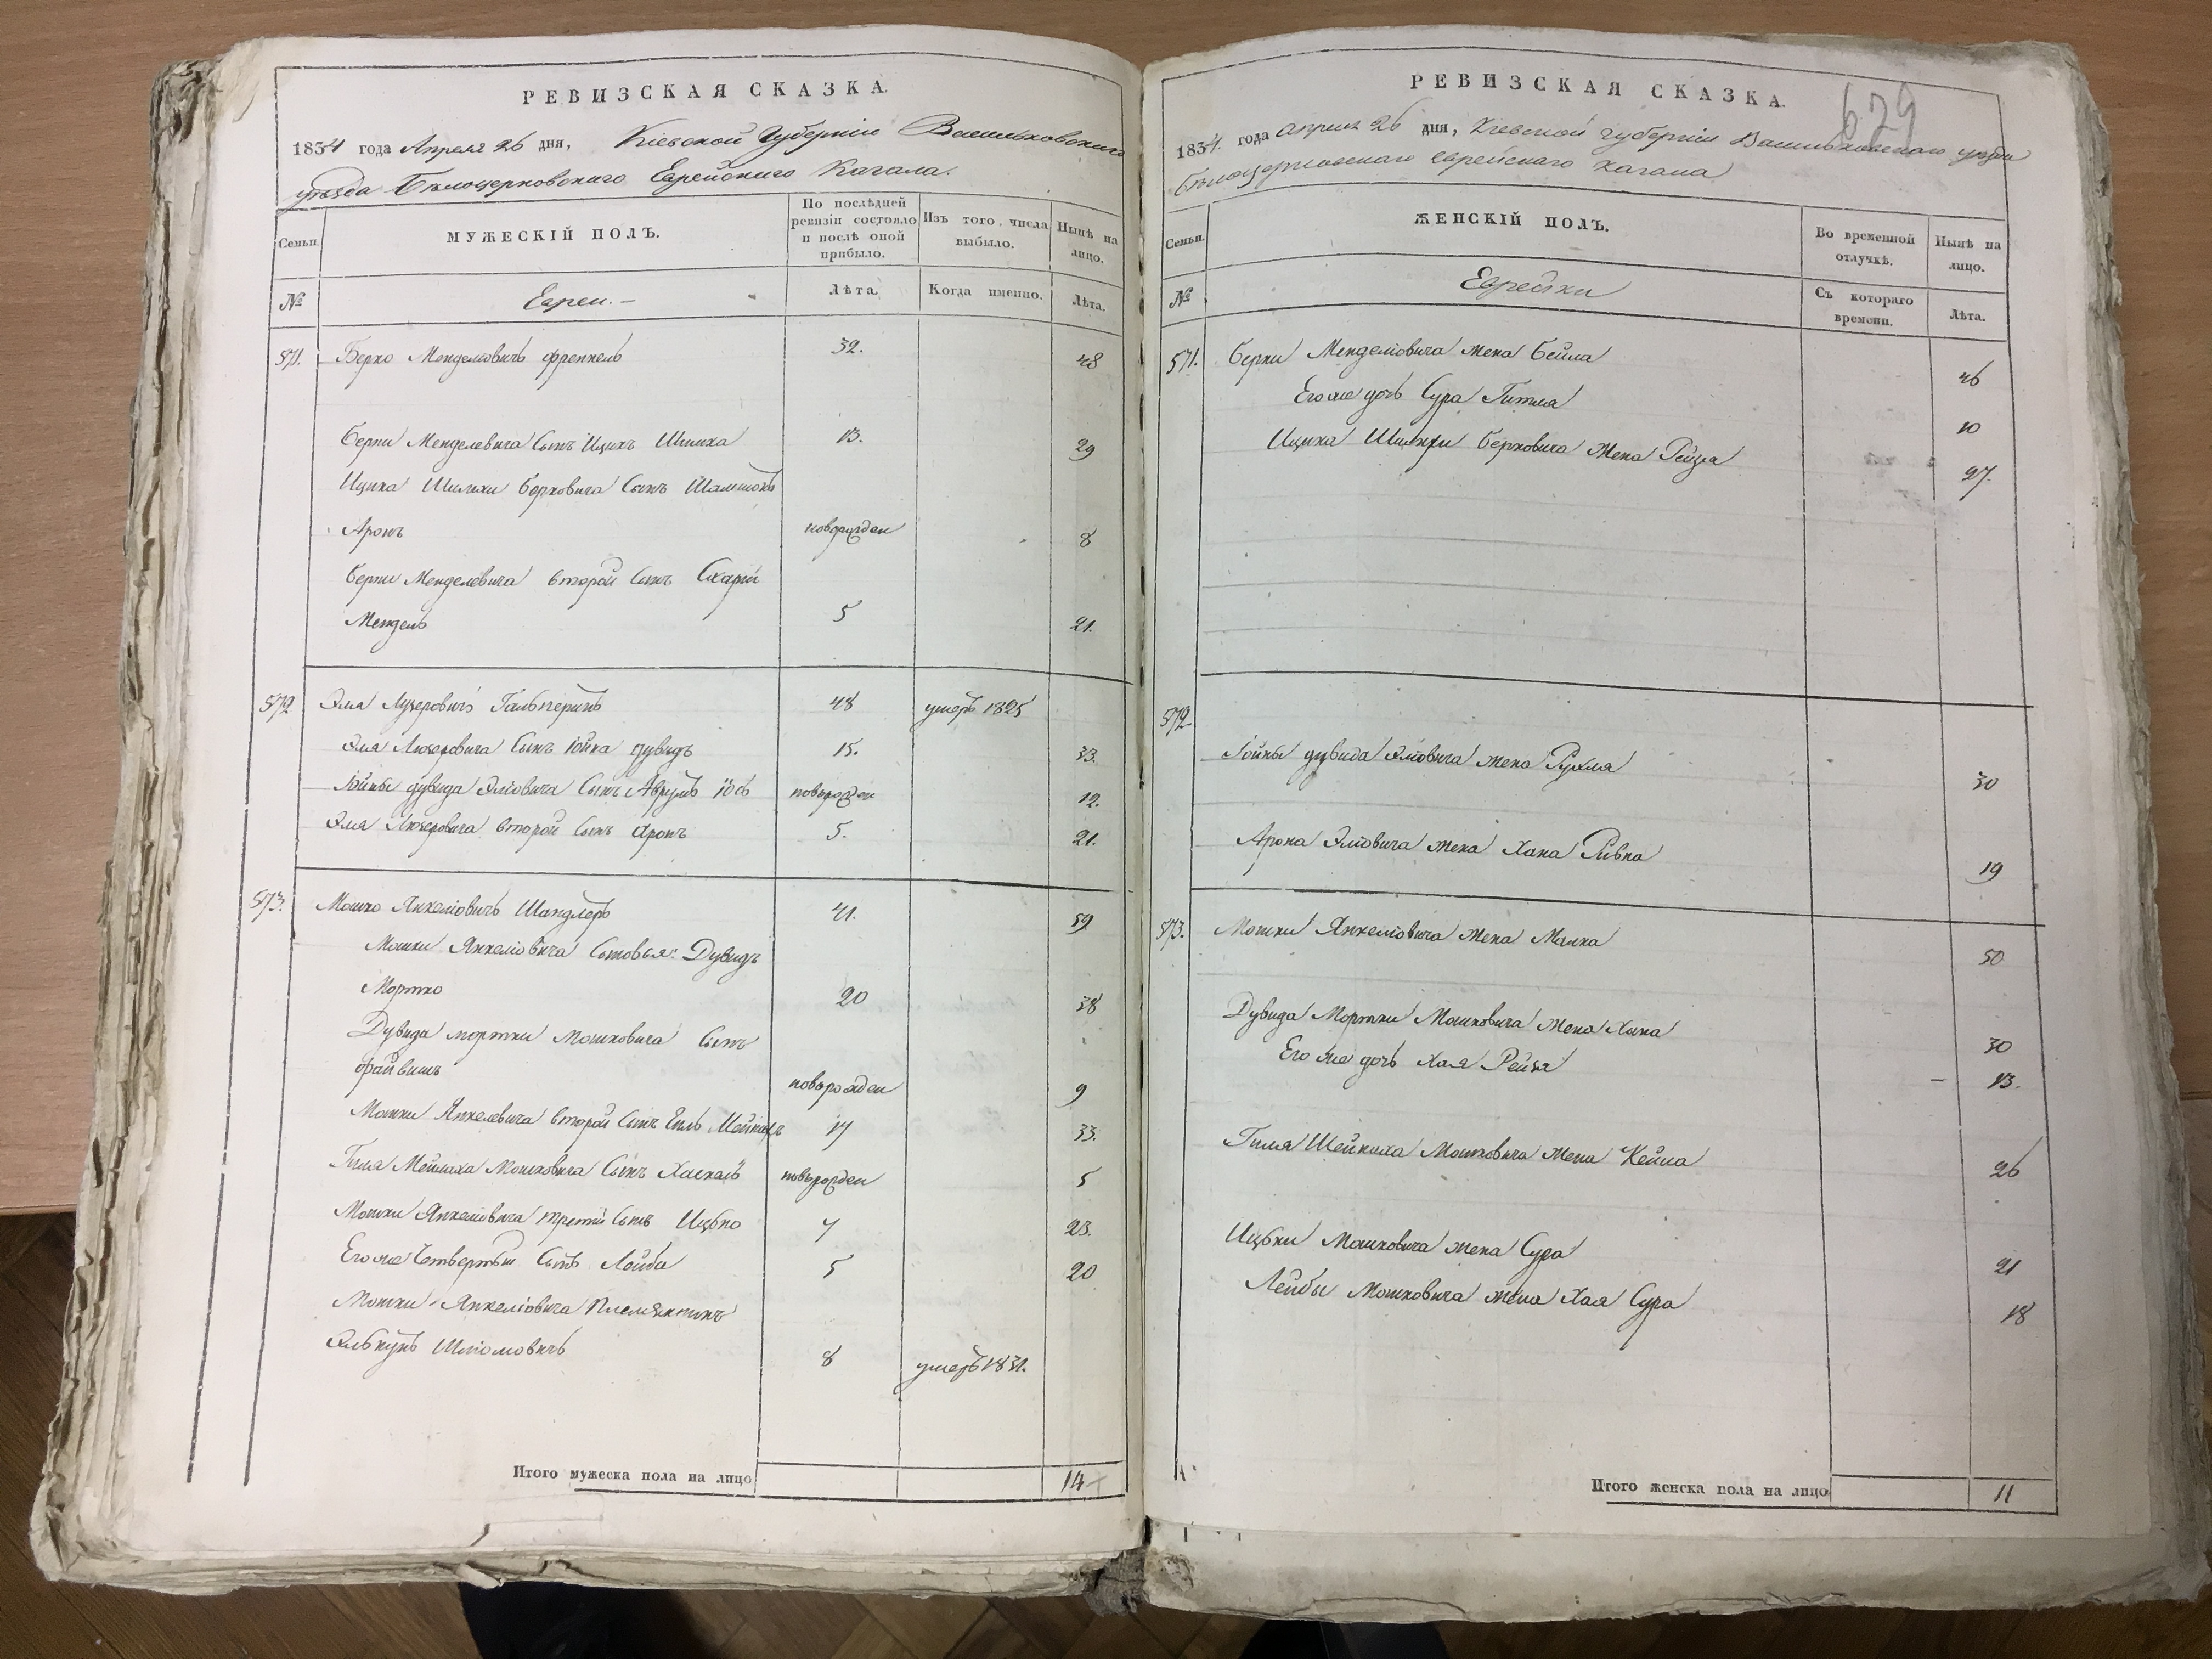 РЕВИЗСКАЯ СКАЗКА.
1834 года Апреля 26 дня, Кіевской Губерніи Васильковскаго
уѣзда Бѣлоцерковскаго Еврейскаго Кагала.
Семьи.
МУЖЕСКІЙ ПОЛЪ.
По послѣдней ревизіи состояло и послѣ оной прибыло.
Изъ того числа выбыло.
Нынѣ на лицо.
№
Евреи.
Лѣта.
Когда именно.
Лѣта.
571. Берко Менделіовичъ Френкель 32. 48
Берки Менделевича Сынъ Ицикъ Шимха 13. 29
Ицика Шимхи Берковича Сынъ
Аронъ новорожден 8
Берки Менделевича второй Сынъ
Мендель 5 21.
572 Эля Лузеровичъ Гальперинъ 48 умеръ 1825
Эля Люзеровича Сынъ Іойна Дувидъ 15. 33.
Іойны Дувида Эліовича Сынъ Аврумъ новорожден 12.
Эля Люзеровича второй Сынъ Аронъ 5. 21.
573. Мошко Янкеліовичъ Шандлеръ 41. 59
Мошки Янкеліовича Сыновья: Дувидъ
Мортко 20 38
Дувида Мортки Мошковича Сынъ
Файвишъ новорожден 9
Мошки Янкелевича второй Сынъ Гиль 17 33.
Гиля Мошковича Сынъ Хаскель новорожден 5
Мошки Янкеліовича третій Сынъ Ицько 7 23.
Его же Четвертый Сынъ Лейба 5 20
Мошки Янкеліовича Племянникъ
Шліомовичъ 8 умеръ 1831.
Итого мужеска пола на лицо 14
РЕВИЗСКАЯ СКАЗКА.
629
1834. года Апреля 26 дня, Кіевской Губерніи Васильковскаго уѣзда
Бѣлоцерковскаго Еврейскаго Кагала
Семьи.
ЖЕНСКІЙ ПОЛЪ.
Во временной отлучкѣ.
Нынѣ на лицо.
№
Еврейки
Съ котораго времени.
Лѣта.
571. Берки Менделіовича жена Бейла 46
Его же дочь Сура Гитля 10
Ицика Шимхи Берковича жена Рейза 27.
572.
Іойны Дувида Эліовича жена Рухля 30
Арона Эліовича жена Хана Ривка 19
573. Мошки Янкеліовича жена Малка 50
Дувида Мортки Мошковича жена Хана 30
Его же дочь Хая Рейза 13.
Гиля Мошковича жена Кейла 26
Ицьки Мошковича жена Сура 21
Лейбы Мошковича жена Хая Сура 18
Итого женска пола на лицо 11